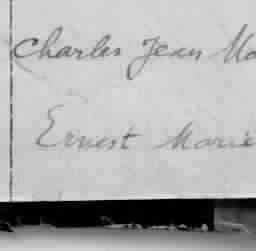 Charles Jean Ma
Ernest Marie